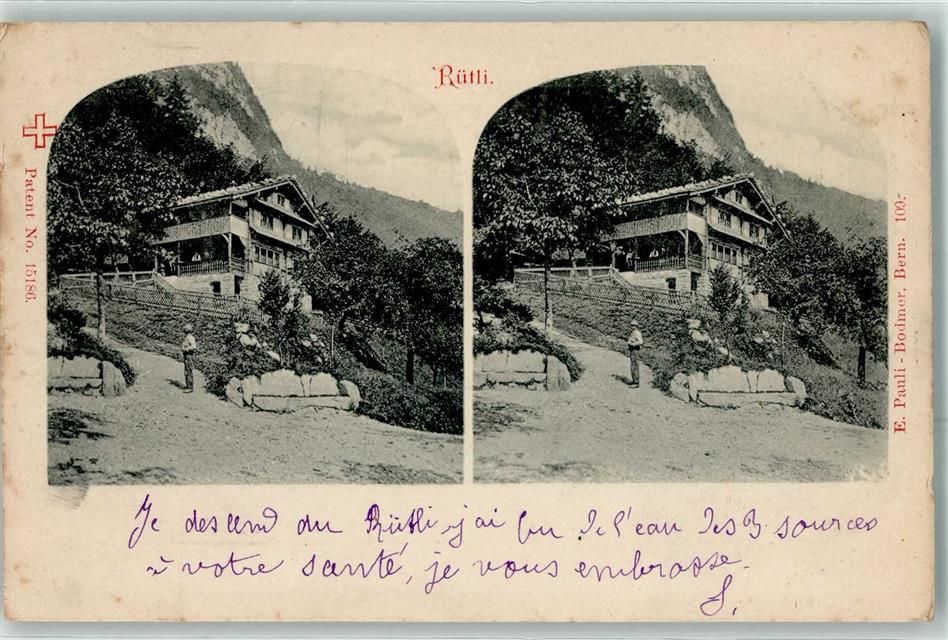 Rütli.
Patent No. 15186.
E. Pauli-Bodmer, Bern. 109.
Je descend du Rütli j'ai bu de l'eau des 3 sources
à votre santé, je vous embrasse.
S.